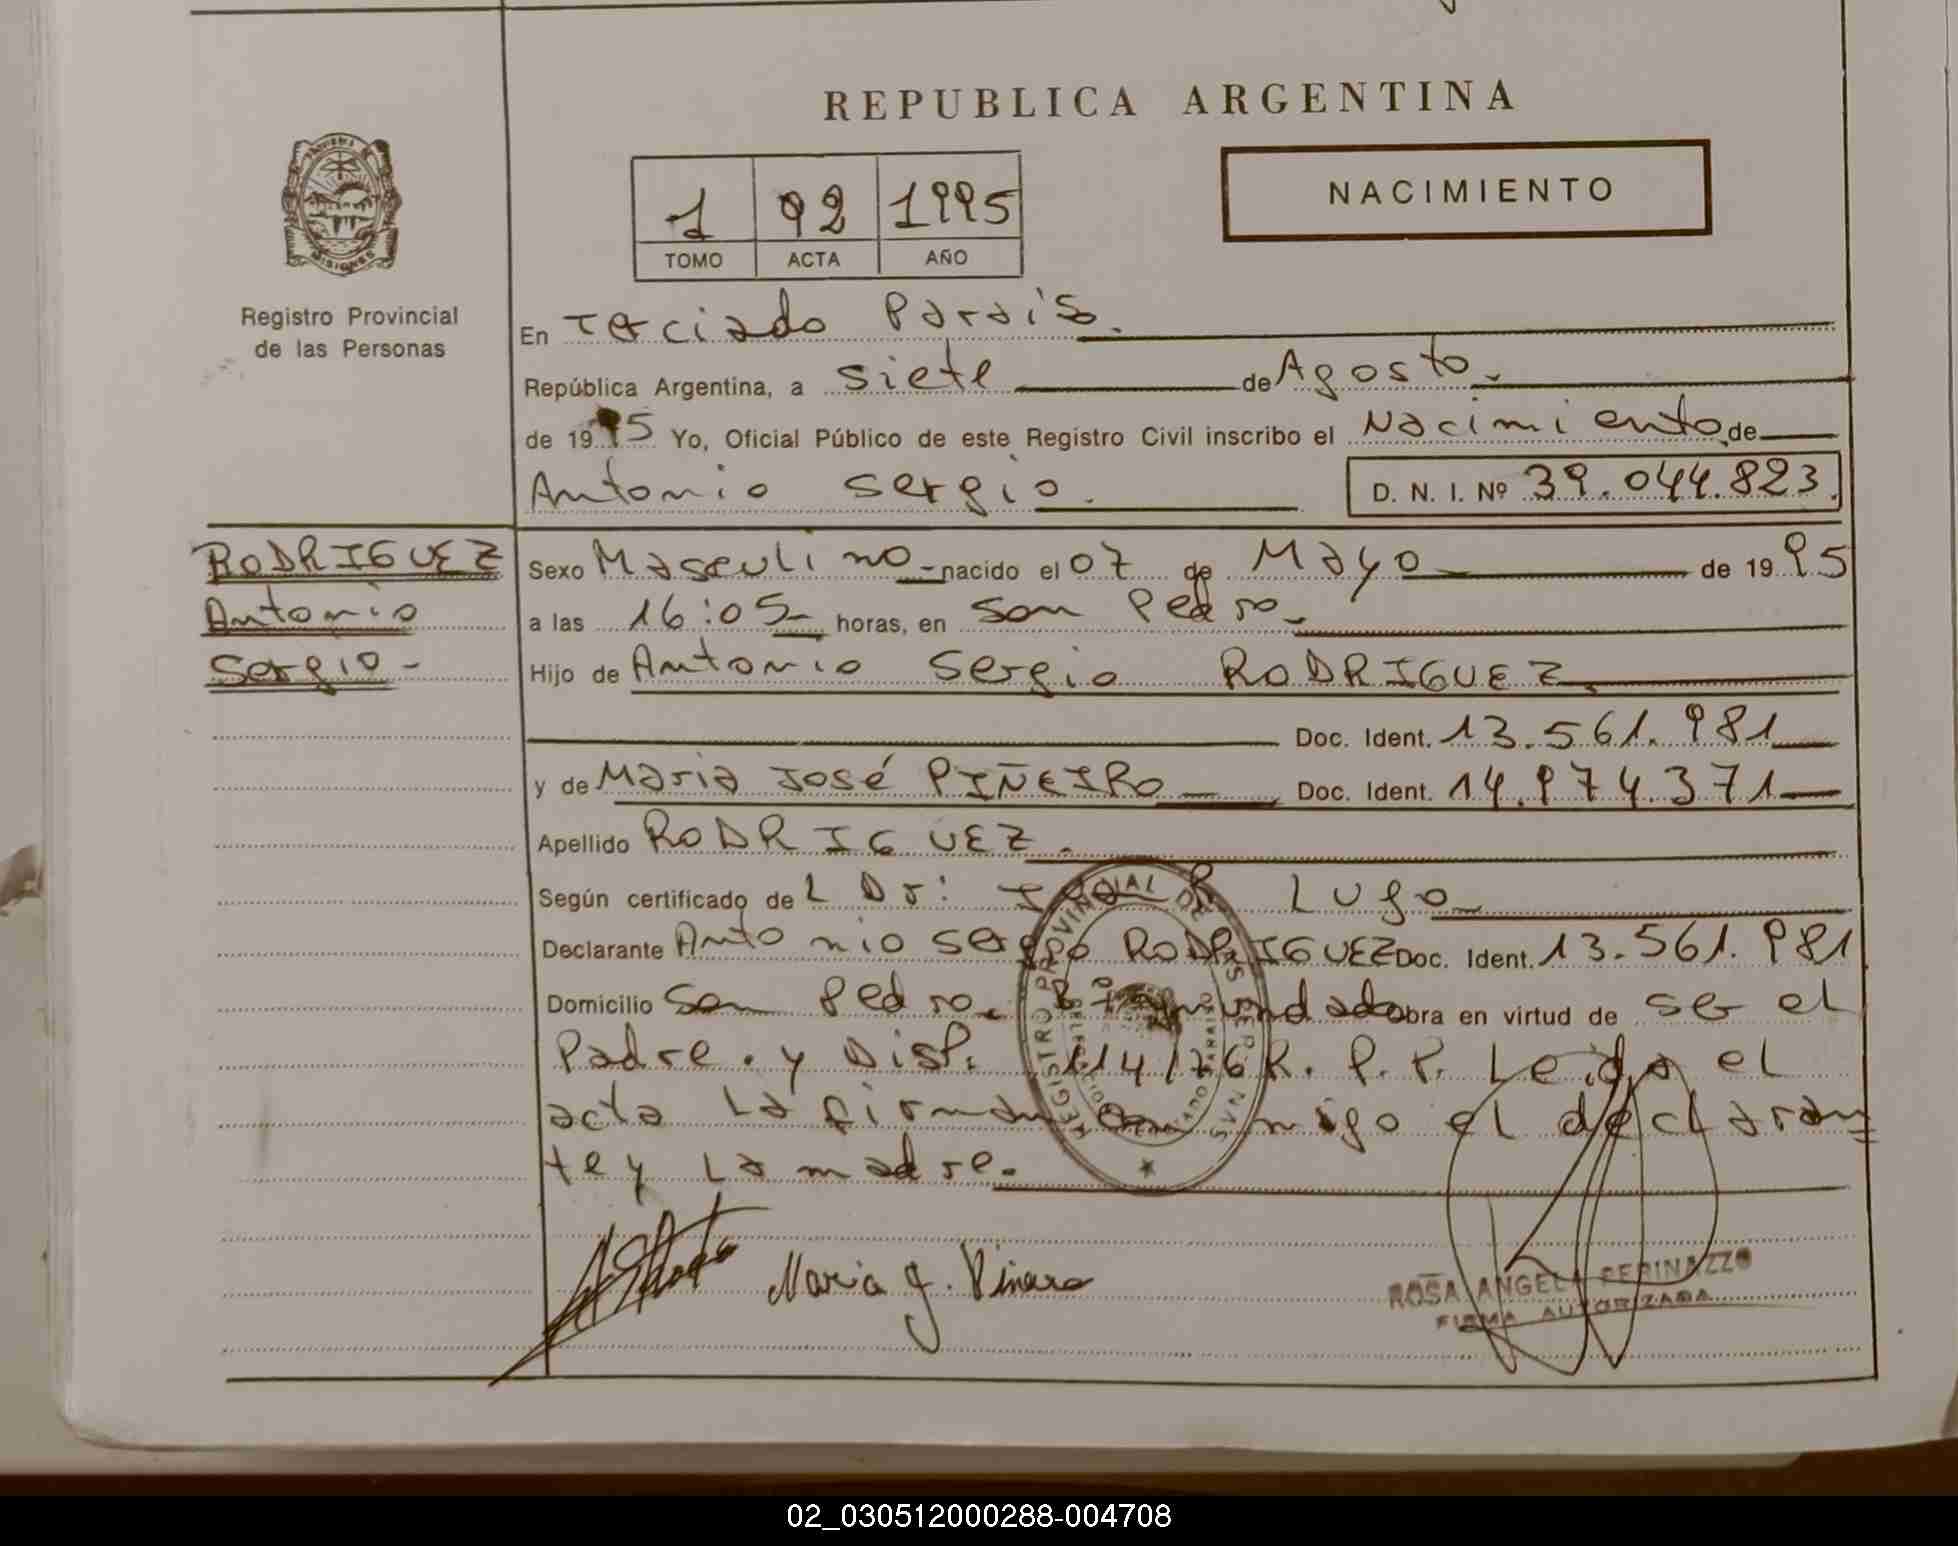 REPUBLICA ARGENTINA
NACIMIENTO
1 92 1995
TOMO ACTA AÑO
MISIONES
Registro Provincial
de las Personas
En Terciado Paraíso.
República Argentina, a siete de Agosto.
de 1995 Yo, Oficial Público de este Registro Civil inscribo el Nacimiento de
Antonio Sergio. D. N. I. Nº 39.044.823.
RODRIGUEZ
Antonio
Sergio-
Sexo Masculino- nacido el 07 de Mayo de 1995
a las 16:05- horas, en San Pedro-
Hijo de Antonio Sergio RODRIGUEZ.
Doc. Ident. 13.561.981
y de Maria José PIÑEIRO Doc. Ident. 14.974.371
Apellido RODRIGUEZ.
Según certificado de L Dr: R. Lugo
Declarante Antonio Sergio RODRIGUEZ Doc. Ident. 13.561.981
Domicilio San Pedro. obra en virtud de ser el
Padre. y Disp. 114/76 R. P. P. Leida el
acta La firman con migo el declaran
te y La madre.
REGISTRO PROVINCIAL DE LAS PERSONAS
Maria J. Piñero
ROSA ANGELA PERINAZZO
FIRMA AUTORIZADA
02_030512000288-004708